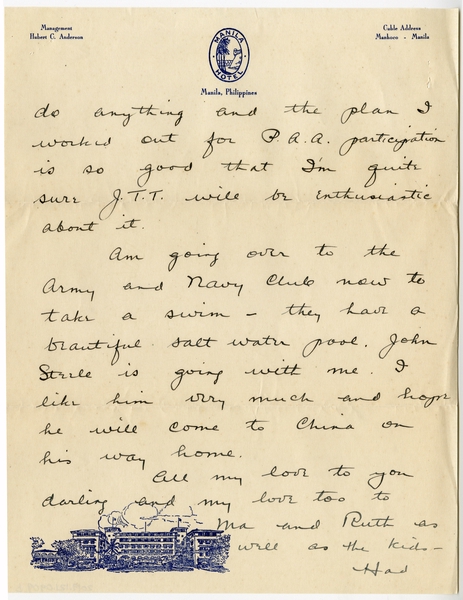 Management
Hubert C. Anderson
MANILA HOTEL
Manila, Philippines
Cable Address
Manhoco - Manila
do anything and the plan I
worked out for P.A.A. participation
is so good that I'm quite
sure J.T.T. will be enthusiastic
about it.
Am going over to the
Army and Navy Club now to
take a swim - they have a
beautiful salt water pool. John
Steele is going with me. I
like him very much and hope
he will come to China on
his way home.
All my love to you
darling and my love too to
Ma and Ruth as
well as the kids -
Hal